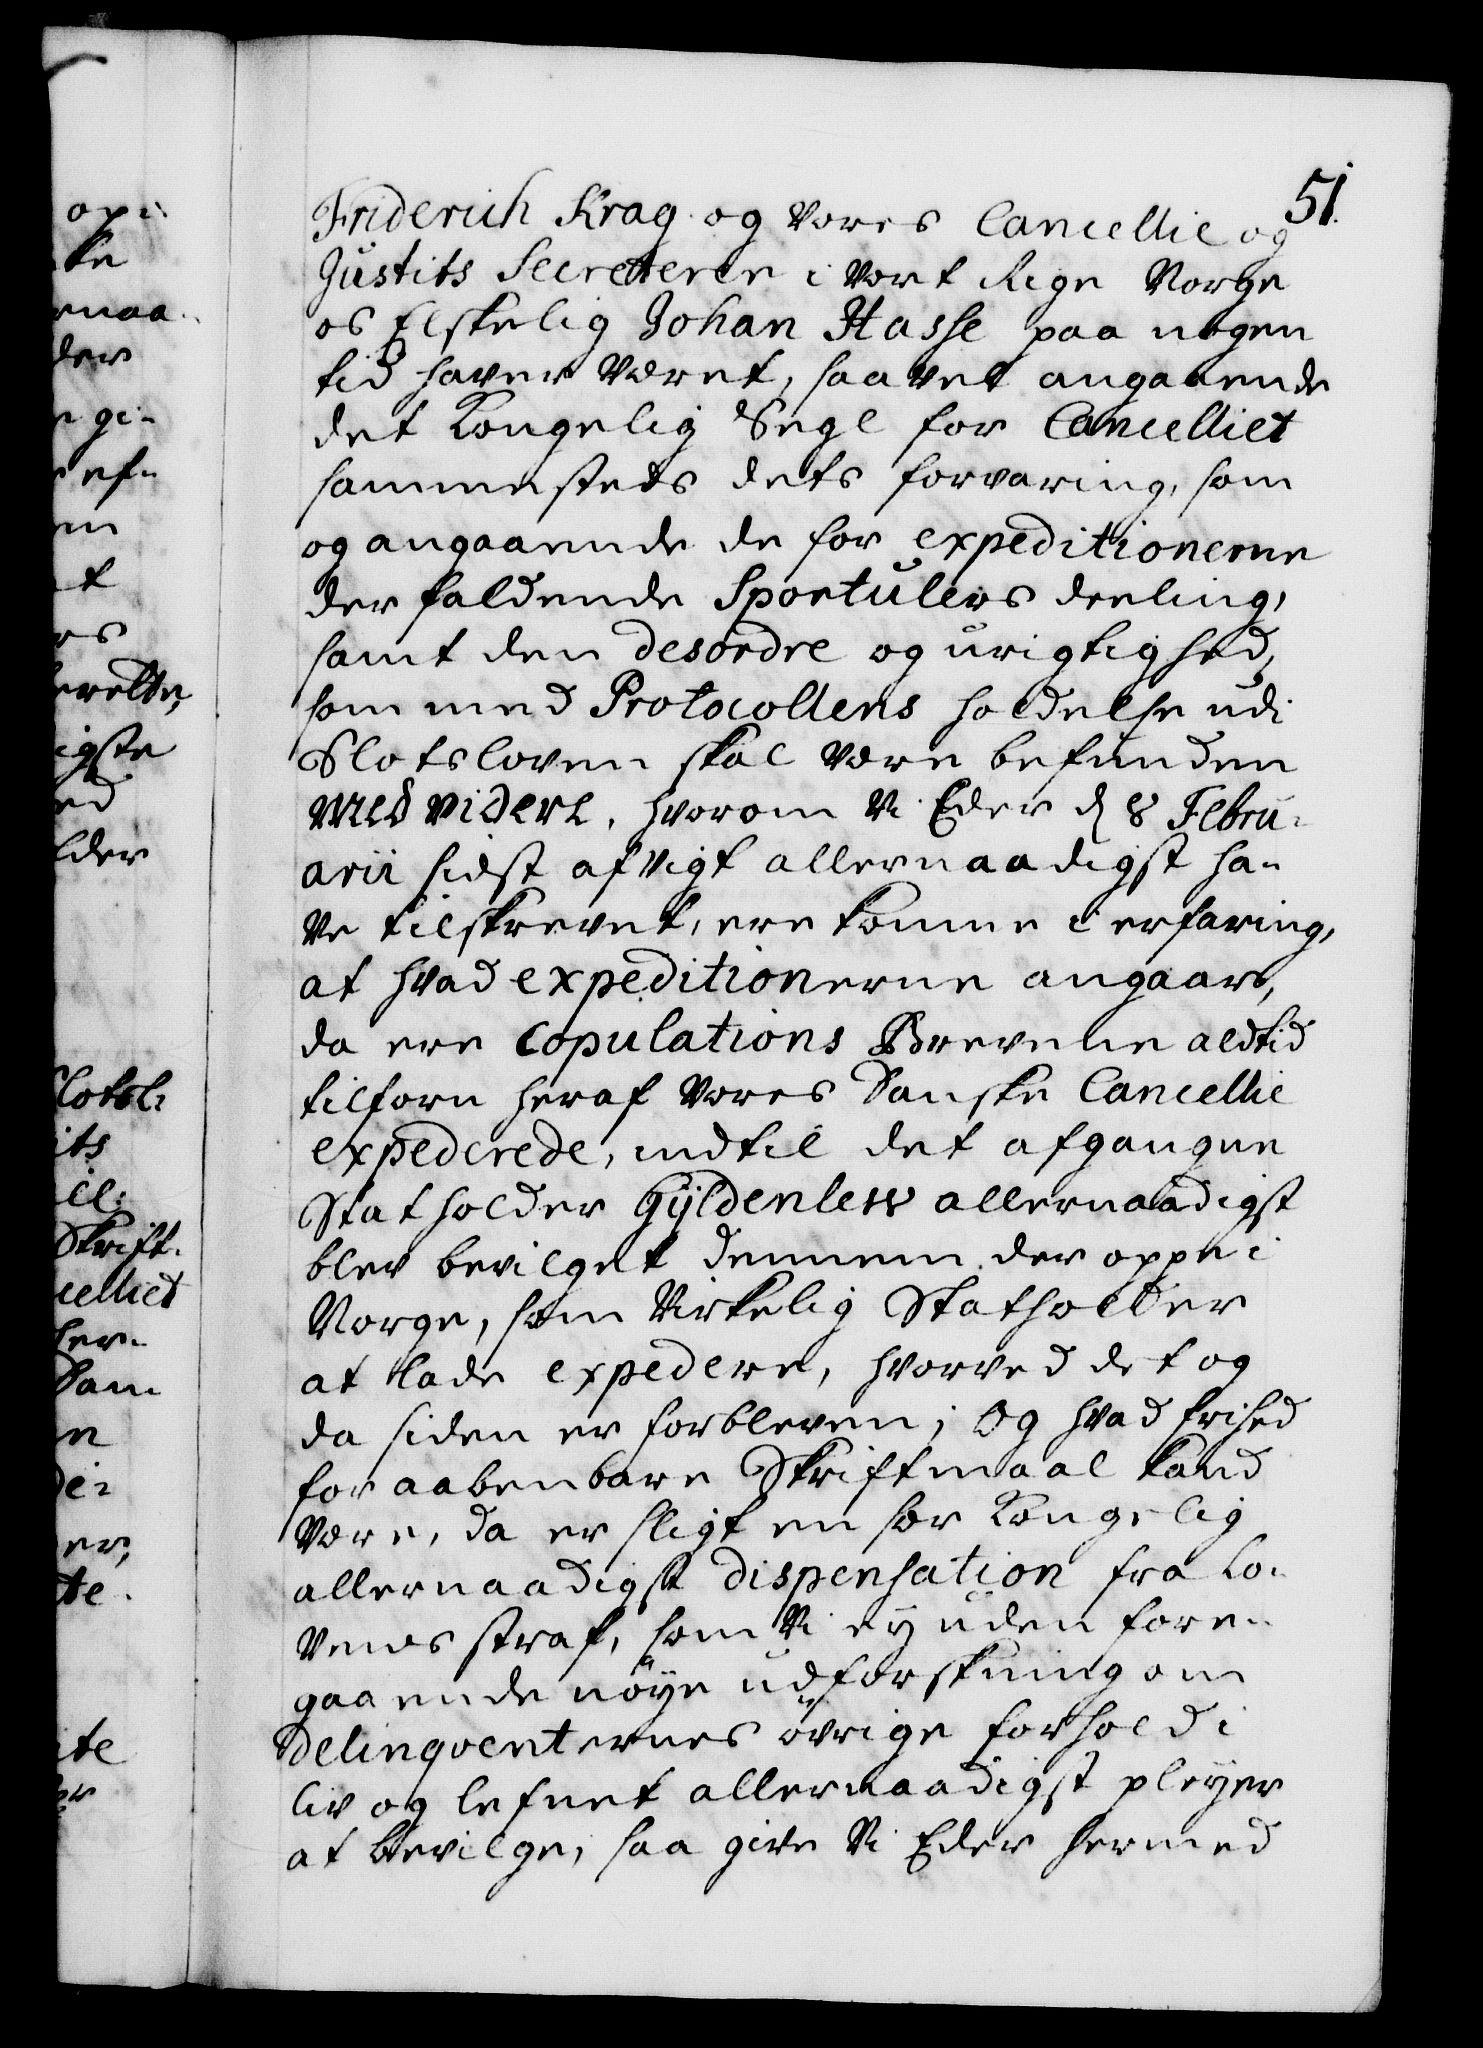 51.
Friderich Krag og vores Cancellie og
Justits Secreterer i vort Rige Norge
os Elskelig Johan Hasse paa nogen
tid haver været, saavel angaaende
det Kongelig Segl for Cancelliet
sammesteds dets forvaring, som
og angaaende de for expeditionerne
der faldende Sportulers deeling,
samt den desordre og urigtighed,
som med Protocollens holdelse udi
Slotsloven skal være befunden
med videre, hvorom Vi Eder d 8 Febru-
arii sidst afvigt allernaadigst ha-
ve tilskrevet, ere komne i erfaring,
at hvad expeditionerne angaar,
da ere Copulations Brevene altid
tilforn heraf vores Danske Cancellie
expederede, indtil det afgangne
Statholder Gyldenlew allernaadigst
blev bevilget dennem der oppe i
Norge, som Virkelig Statholder
at lade expedere, hvorved det og
da siden er forbleven; Og hvad frihed
for aabenbare Skriftmaal kand
være, da er sligt en sær Kongelig
allernaadigst dispensation fra Lo-
vens straf, som Vi ey uden fore-
gaaende nøye udforskning om
Delinqventernes øvrige forhold i
liv og lefnet allernaadigst pleyer
at bevilge, saa give Vi Eder hermed